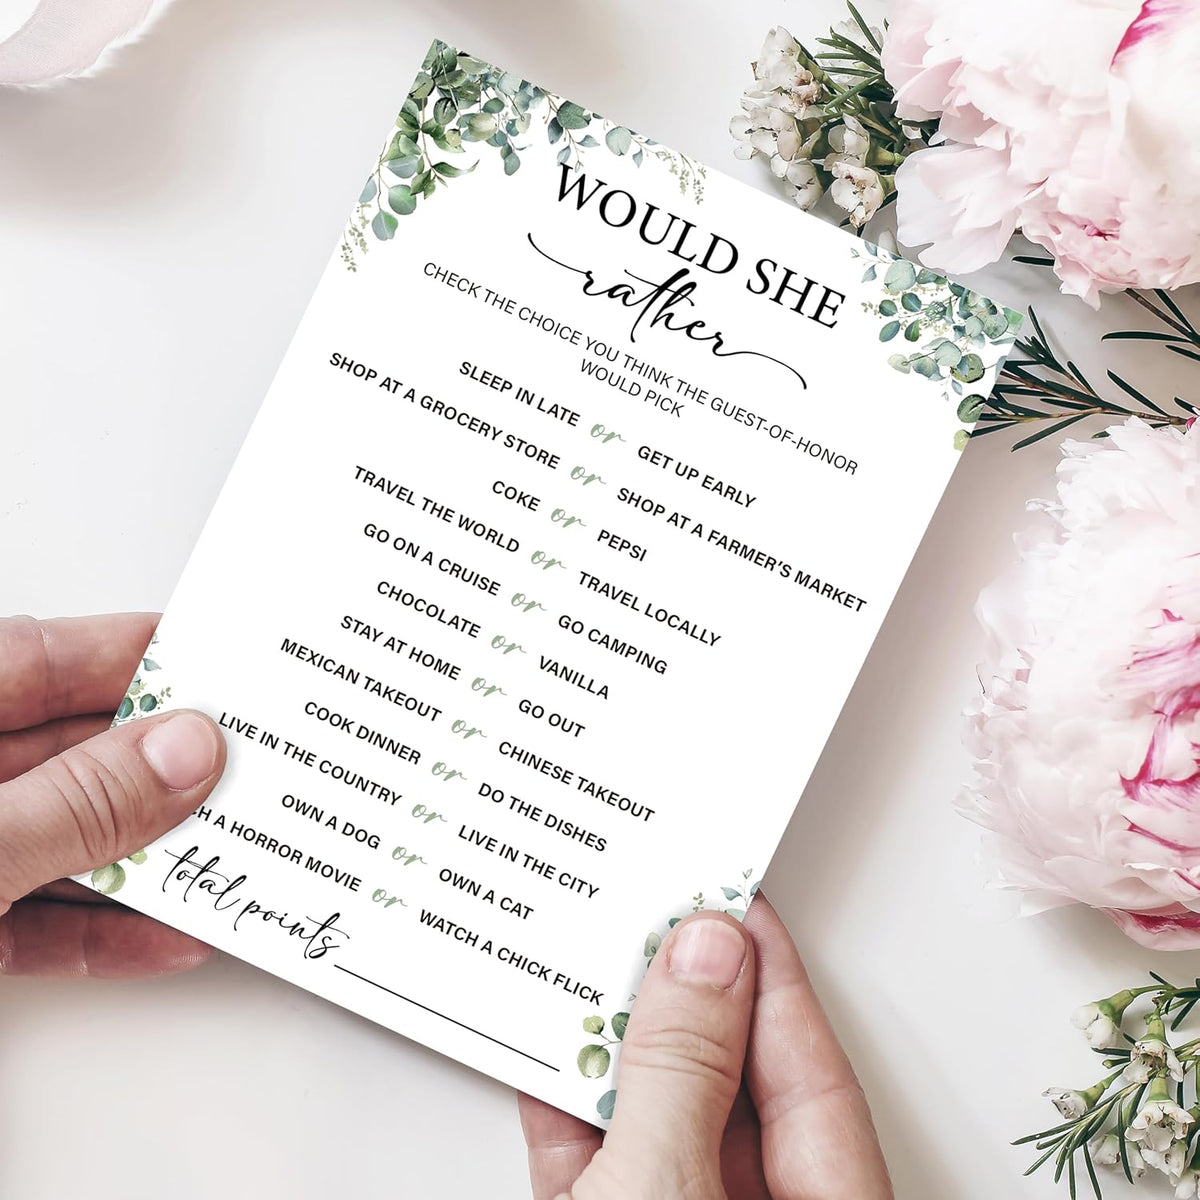 WOULD SHE
rather
CHECK THE CHOICE YOU THINK THE GUEST-OF-HONOR
WOULD PICK
SLEEP IN LATE or GET UP EARLY
SHOP AT A GROCERY STORE or SHOP AT A FARMER'S MARKET
COKE or PEPSI
TRAVEL THE WORLD or TRAVEL LOCALLY
GO ON A CRUISE or GO CAMPING
CHOCOLATE or VANILLA
STAY AT HOME or GO OUT
MEXICAN TAKEOUT or CHINESE TAKEOUT
COOK DINNER or DO THE DISHES
LIVE IN THE COUNTRY or LIVE IN THE CITY
OWN A DOG or OWN A CAT
A HORROR MOVIE or WATCH A CHICK FLICK
total points